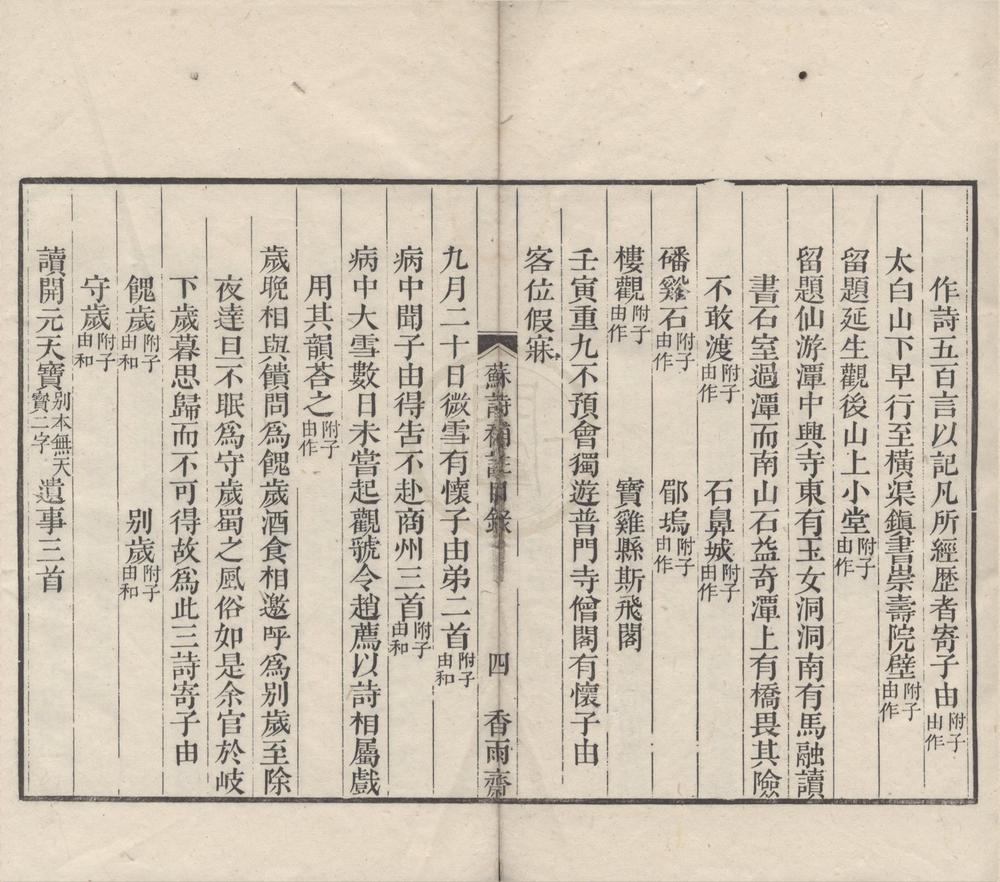 作詩五百言以記凡所經歷者寄子由附子由作
太白山下早行至橫渠鎮書崇壽院壁附子由作
留題延生觀後山上小堂附子由作
留題仙游潭中興寺東有玉女洞洞南有馬融讀
書石室過潭而南山石益奇潭上有橋畏其險
不敢渡附子由作 石鼻城附子由作
磻谿石附子由作 郿塢附子由作
樓觀附子由作 寶雞縣斯飛閣
壬寅重九不預會獨遊普門寺僧閣有懷子由
客位假寐
蘇詩補註目錄 四 香雨齋
九月二十日微雪有懷子由弟二首附子由和
病中聞子由得告不赴商州三首附子由和
病中大雪數日未嘗起觀虢令趙薦以詩相屬戲
用其韻荅之附子由作
歲晚相與饋問爲餽歲酒食相邀呼爲別歲至除
夜達旦不眠爲守歲蜀之風俗如是余官於岐
下歲暮思歸而不可得故爲此三詩寄子由
餽歲附子由和 別歲附子由和
守歲附子由和
讀開元天寶别本無天寶二字遺事三首